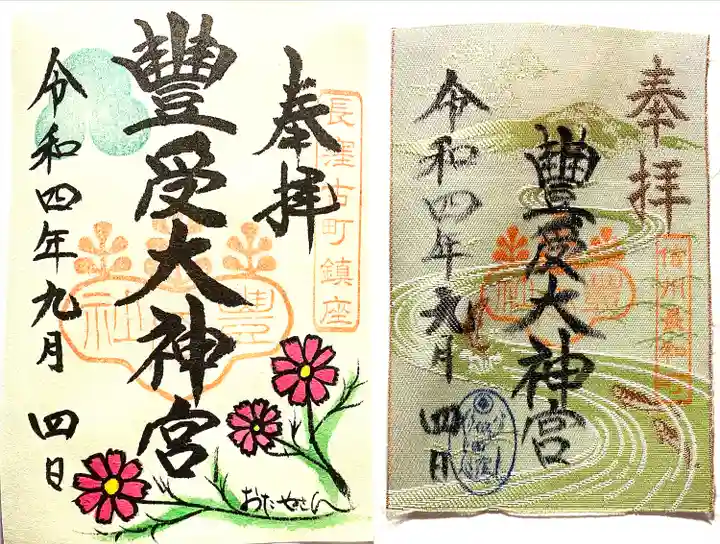 奉拝
長窪古町鎮座
豊受大神宮
令和四年九月 四日
おたやさん
奉拝
豊受大神宮
令和四年九月 四日